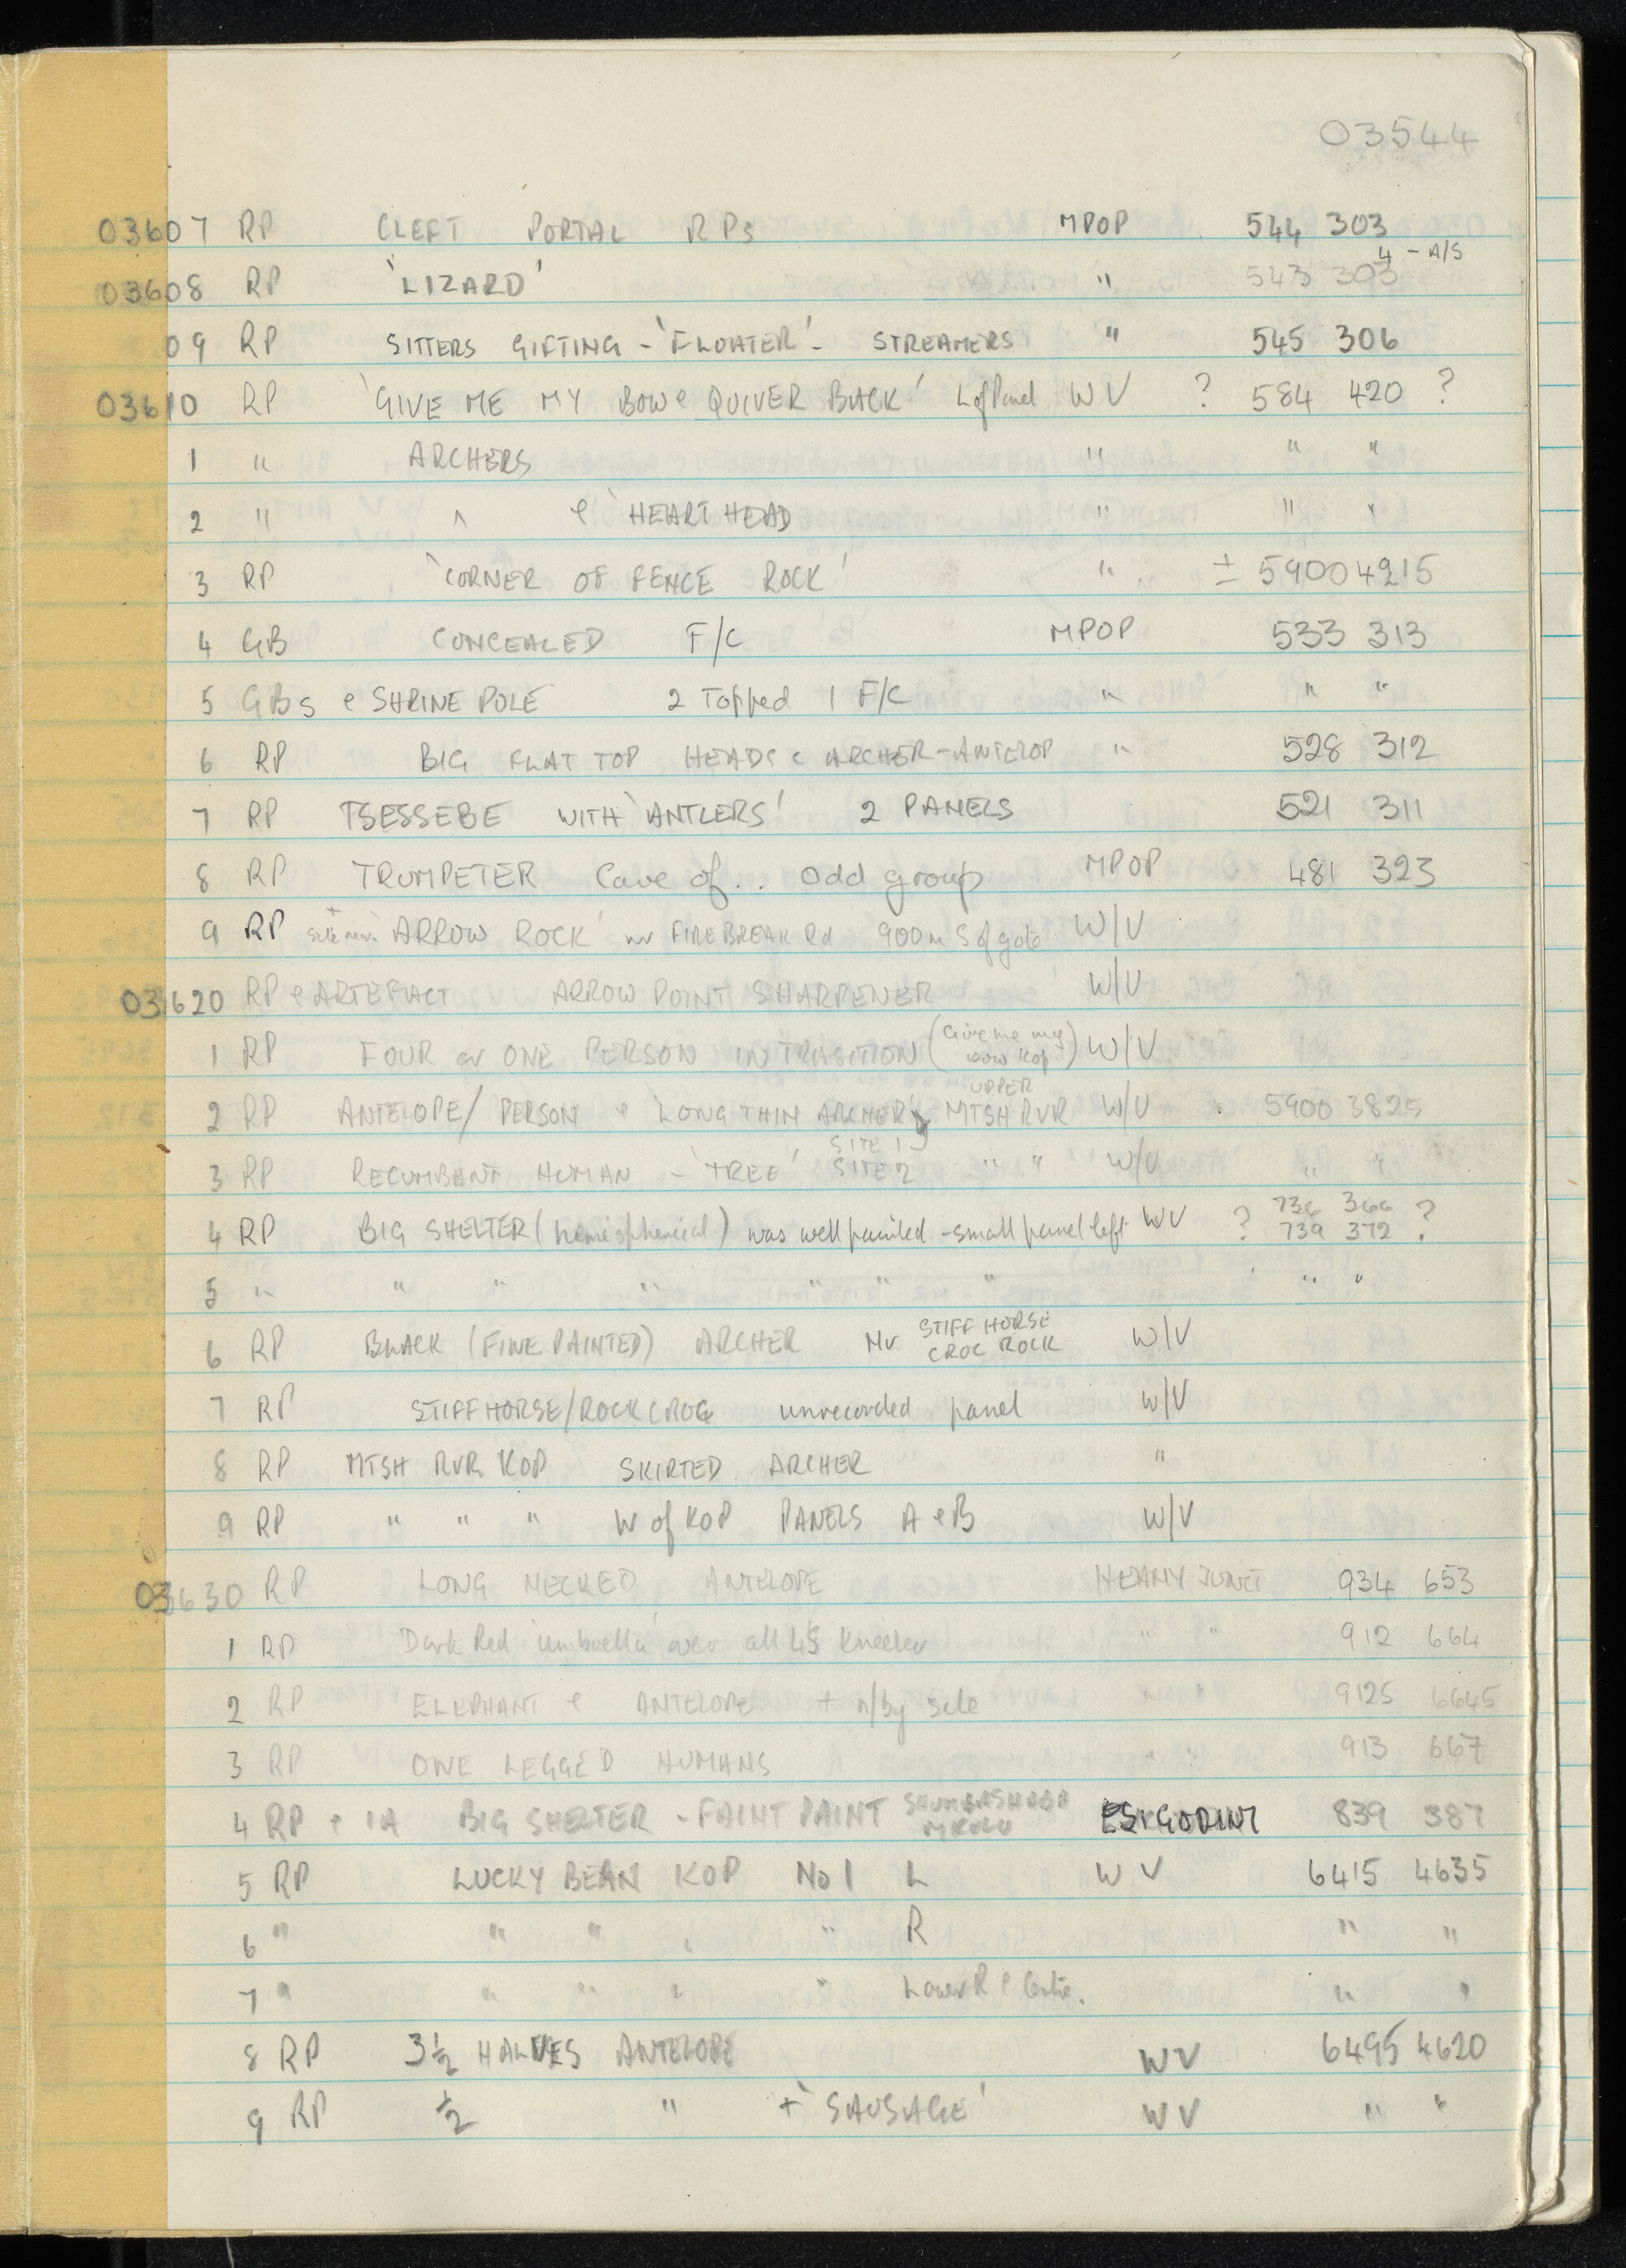 03544
03607 RP CLEFT PORTAL RPs MPOP 544 303
03608 RP 'LIZARD' " 543 303 4 - A/S
09 RP SITTERS GIFTING - 'FLOATER' - STREAMERS " 545 306
03610 RP 'GIVE ME MY BOW & QUIVER BACK' L of Panel WV ? 584 420 ?
1 " ARCHERS " " "
2 " " & 'HEART HEAD " " "
3 RP 'CORNER OF FENCE ROCK' " ± 5900 4215
4 GB CONCEALED F/C MPOP 533 313
5 GBs & SHRINE POLE 2 Topped 1 F/C " " "
6 RP BIG FLAT TOP HEADS & ARCHER-ANTELOP " 528 312
7 RP TSESSEBE WITH 'ANTLERS' 2 PANELS 521 311
8 RP TRUMPETER Cave of.. Odd group MPOP 481 323
9 RP + site near 'ARROW ROCK' nr FIREBREAK Rd 900m S of gate W/V
03620 RP & ARTEFACT ARROW POINT SHARPENER W/V
1 RP FOUR or ONE PERSON IN TRASITION (Give me my bow Kop) W/V
2 RP ANTELOPE/PERSON & 'LONG THIN ARCHER' SITE 1 UPPER MTSH RVR W/V 5900 3825
3 RP RECUMBANT HUMAN - 'TREE' SITE 2 " " W/V " "
4 RP BIG SHELTER (hemispherical) was well painted - small panel left WV ? 736 366 739 372 ?
5 " " " " " " " " "
6 RP BLACK (FINE PAINTED) ARCHER Nr STIFF HORSE CROC ROCK W/V
7 RP STIFF HORSE/ROCK CROC unrecorded panel W/V
8 RP MTSH RVR KOP SKIRTED ARCHER "
9 RP " " " W of KOP PANELS A & B W/V
03630 RP LONG NECKED ANTELOPE HEANY JUNCT 934 653
1 RP Dark Red 'umbrella' over all 4s kneeler " " 912 664
2 RP ELEPHANT & ANTELOPE + n/by site 9125 6645
3 RP ONE LEGGED HUMANS " " 913 667
4 RP & IA BIG SHELTER - FAINT PAINT ESIGODINI 839 387
5 RP LUCKY BEAN KOP No 1 L WV 6415 4635
6 " " " " " R " "
7 " " " " " Lower R & Centre. " "
8 RP 3½ HALVES ANTELOPE WV 6495 4620
9 RP ½ " + 'SAUSAGE' WV " "